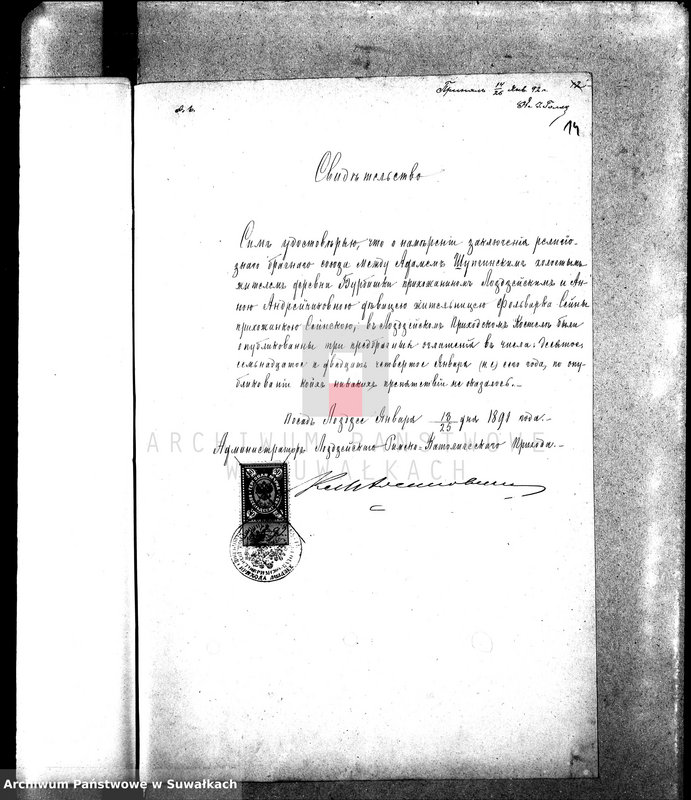 14
Свидѣтельство
Симъ удостовѣряю, что о намѣреніи заключенія религіо-
знаго брачнаго союза между Адамомъ холостымъ
жителемъ деревни прихожаниномъ Лоздзейскимъ и Ан-
ною Андрейчиковною дѣвицею жительницею Фольварка Сейны
прихожанкою Сейнскою, въ Лоздзейскомъ Приходскомъ Костелѣ были
опубликованы три предбрачныя оглашенія въ числа: десятое,
семьнадцатое и двадцать четвертое Января (н с) сего года, по опу-
бликованіи коихъ никакихъ препятствій не оказалось.
Посадъ Лоздзее Января 13/25 дня года.
Администраторъ Лоздзейскаго Римско-Католическаго Прихода.
ARCHIWUM PAŃSTWOWE
W SUWAŁKACH
Archiwum Państwowe w Suwałkach